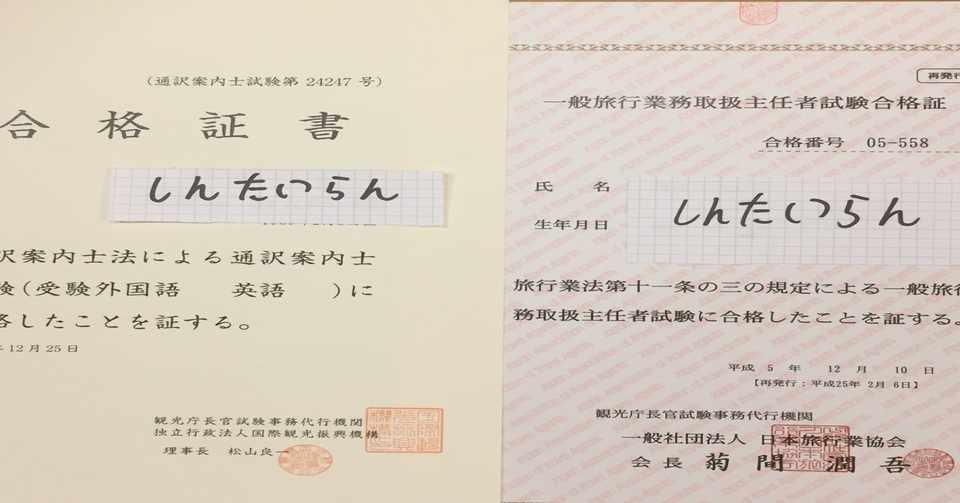 (通訳案内士試験第 24247 号)
合格証書
しんたいらん
訳案内士法による通訳案内士
験(受験外国語 英語 )に
格したことを証する。
年12月25日
観光庁長官試験事務代行機関
独立行政法人国際観光振興機構
理事長 松山良一
再発行
一般旅行業務取扱主任者試験合格証
合格番号 05-558
氏 名
しんたいらん
生年月日
旅行業法第十一条の三の規定による一般旅行
務取扱主任者試験に合格したことを証する。
平成 5 年 12 月 10 日
【再発行:平成25年 2月 6日】
観光庁長官試験事務代行機関
一般社団法人 日本旅行業協会
会長 菊間潤吾